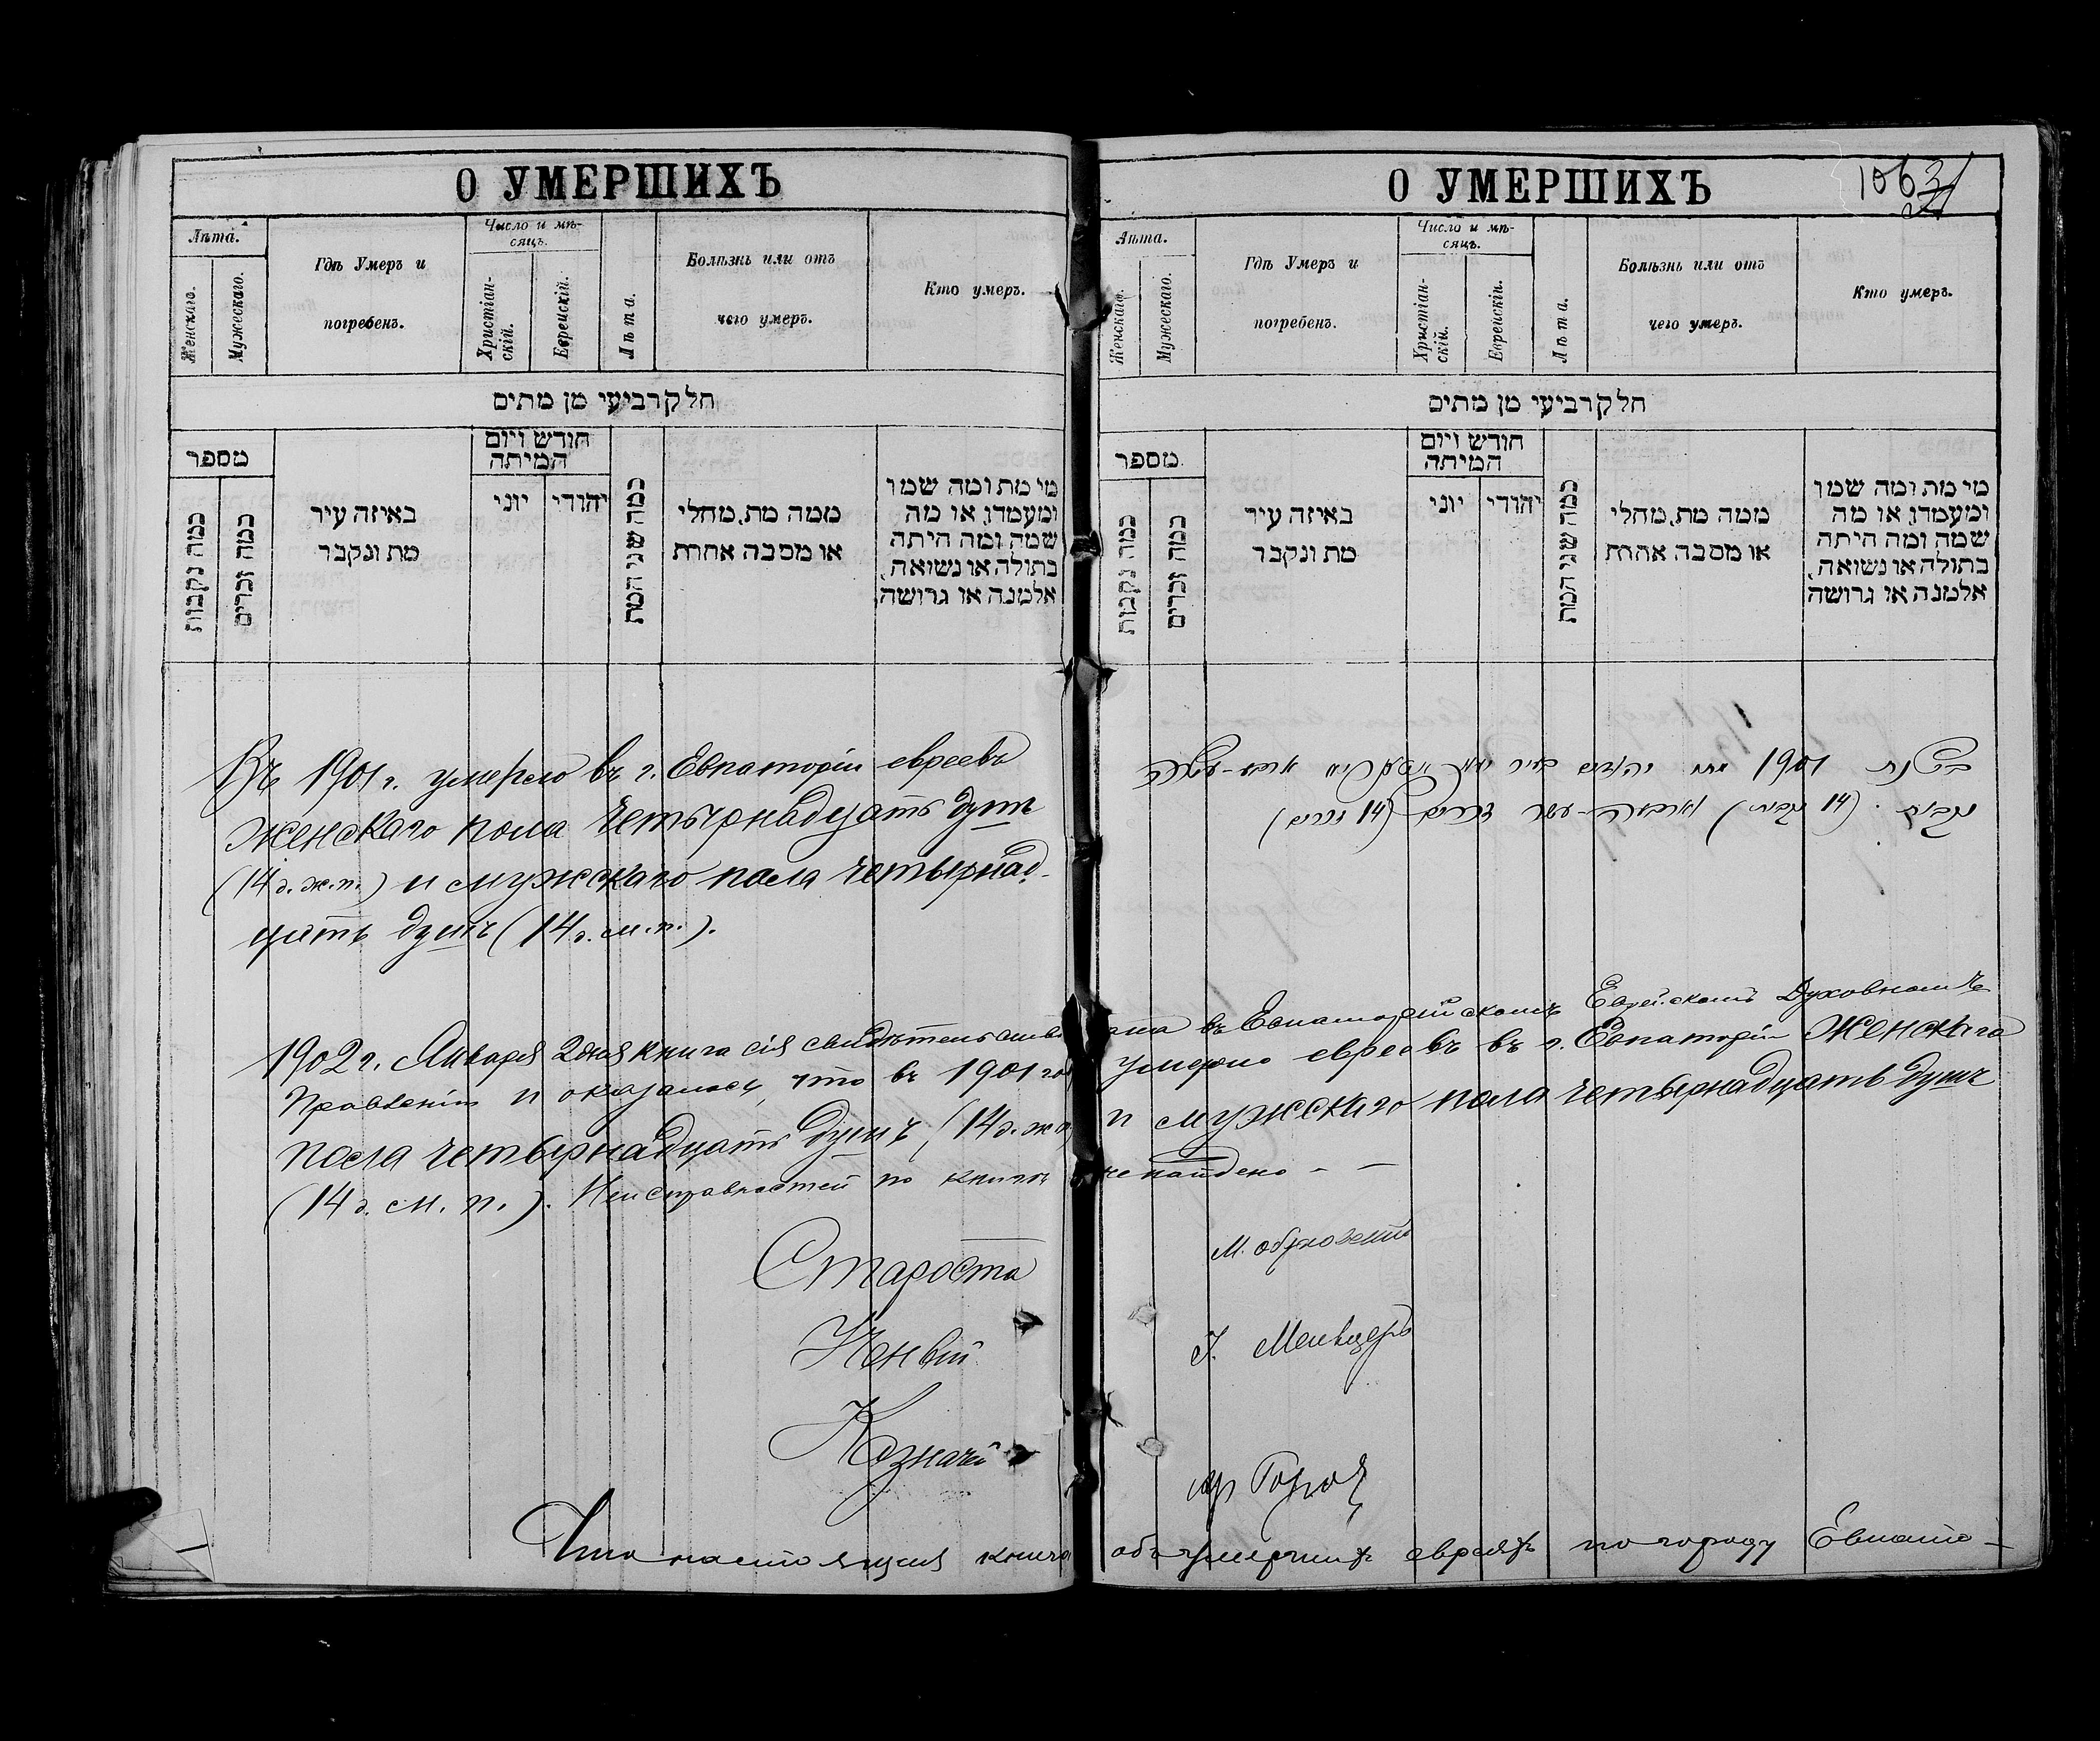 О УМЕРШИХЪ
Лѣта.
Женскаго.
Мужескаго.
Гдѣ Умеръ и
погребенъ.
Число и мѣ-
сяцъ.
Христіан-
скій.
Еврейскій.
Лѣта.
Болѣзнь или отъ
чего умеръ.
Кто умеръ.
חלק רביעי מן מתים
מספר
כמה נקבות
כמה זכרים
באיזה עיר
מת ונקבר
חודש ויום
המיתה
יוני
יהודי
כמה שני המת
ממה מת, מחלי
או מסבה אחרת
מי מת ומה שמו
ומעמדו, או מה
שמה ומה היתה
בתולה או נשואה,
אלמנה או גרושה,
Въ 1901 г. умерло въ г. Евпаторіи евреевъ
женскаго пола четырнадцать душъ
(14 д. ж. п.) и мужскаго пола четырнад-
цать душъ (14 д. м. п.).
О УМЕРШИХЪ
1063
Лѣта.
Женскаго.
Мужескаго.
Гдѣ Умеръ и
погребенъ.
Число и мѣ-
сяцъ.
Христіан-
скій.
Еврейскій.
Лѣта.
Болѣзнь или отъ
чего умеръ.
Кто умеръ.
חלק רביעי מן מתים
מספר
כמה נקבות
כמה זכרים
באיזה עיר
מת ונקבר
חודש ויום
המיתה
יוני
יהודי
כמה שני המת
ממה מת, מחלי
או מסבה אחרת
מי מת ומה שמו
ומעמדו, או מה
שמה ומה היתה
בתולה או נשואה,
אלמנה או גרושה,
בשנת 1901 מתו יהודים בעיר ארבע-עשרה
נקבות (14 נקבות) וארבעה-עשר זכרים (14 זכרים)
1902 г. Января 2 дня книга сія свидѣтельствована въ Евпаторійскомъ Еврейскомъ Духовномъ
Правленіи и оказалось, что въ 1901 году умерло евреевъ въ г. Евпаторіи женскаго
пола четырнадцать душъ (14 д. ж. п.) и мужскаго пола четырнадцать душъ
(14 д. м. п.). Неисправностей по книгѣ не найдено - -
Староста
Казначей
Что настоящая книга объ умершихъ евреяхъ по городу Евпато-